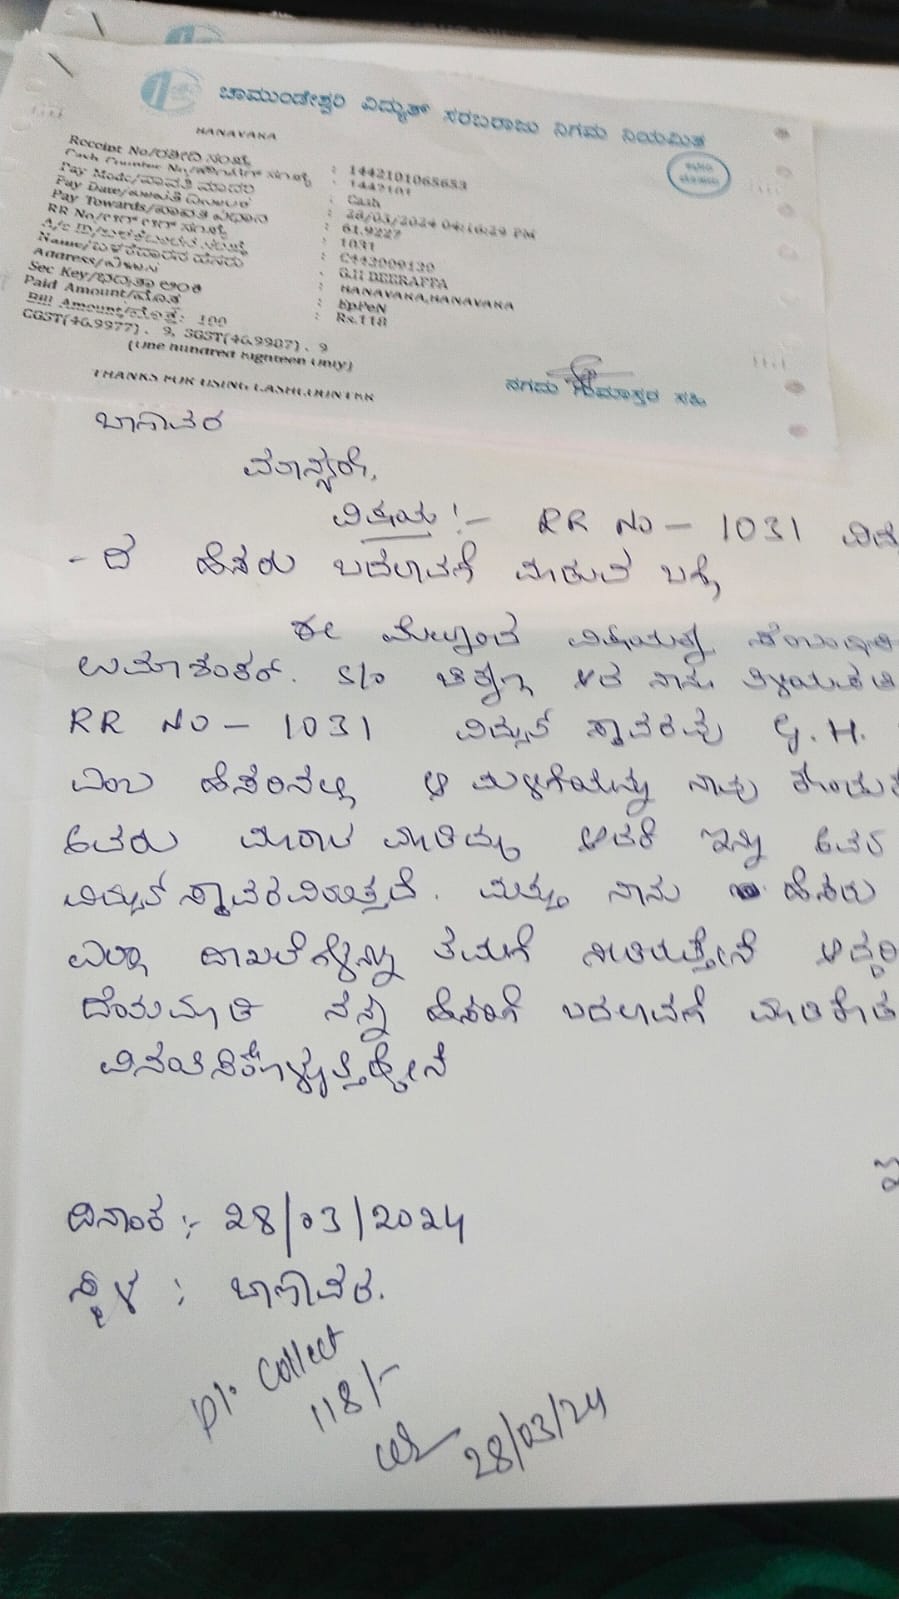 ಚಾಮುಂಡೇಶ್ವರಿ ವಿದ್ಯುತ್ ಸರಬರಾಜು ನಿಗಮ ನಿಯಮಿತ
HANAVAKA
Receipt No/ರಶೀದಿ ಸಂಖ್ಯೆ : 1442101065653
Cash Counter No/ : 1442101
Pay Mode/ಪಾವತಿ ಮಾದರಿ : Cash
Pay Date/ಪಾವತಿ ದಿನಾಂಕ : 28/03/2024 04:16:29 PM
Pay Towards/ಪಾವತಿ ವಿಧಾನ : 61.9227
RR No/ಆರ್ ಆರ್ ಸಂಖ್ಯೆ : 1031
A/c ID/ : C443009130
Name/ಬಳಕೆದಾರರ ಹೆಸರು : G.H DEERAPPA
Address/ವಿಳಾಸ : HANAVAKA,HANAVAKA
Sec Key/ಭದ್ರತಾ ಅಂಕಿ : EpPeN
Paid Amount/ಮೊತ್ತ : Rs.118
Bill Amount/ಮೊತ್ತ: 100
CGST(46.9977) . 9, SGST(46.9987) . 9
(One hundred Eighteen Only)
THANKS FOR USING CASHCOUNTER
ನಗದು ಗುಮಾಸ್ತರ ಸಹಿ
ಬಾಣಾವರ
ಮಾನ್ಯರೇ,
ವಿಷಯ :- RR No - 1031
- ದ ಹೆಸರು ಬದಲಾವಣೆ ಮಾಡುವ ಬಗ್ಗೆ
ಈ ಮೇಲ್ಕಂಡ
ಉಮಾಶಂಕರ್. S/o ಆದ ನಾನು
RR No - 1031 ವಿದ್ಯುತ್ ಸ್ಥಾವರವು G.H.
ಎಂಬ ಹೆಸರಿನಲ್ಲಿ ಆ ಮಳಿಗೆಯನ್ನು ನಾವು
ಅವರು ಮಾರಾಟ ಆದರೆ ಇನ್ನು ಅವರ
ವಿದ್ಯುತ್ ಸ್ಥಾವರವಿರುತ್ತದೆ. ಮತ್ತು ನಾನು ಹೆಸರು
ಎಲ್ಲಾ ದಾಖಲೆಗಳನ್ನು ತಮಗೆ ನೀಡಿರುತ್ತೇನೆ
ದಯಮಾಡಿ ನನ್ನ ಹೆಸರಿಗೆ ಬದಲಾವಣೆ
ದಿನಾಂಕ :- 28/03/2024
ಸ್ಥಳ : ಬಾಣಾವರ.
Pl. Collect
118/-
28/03/24